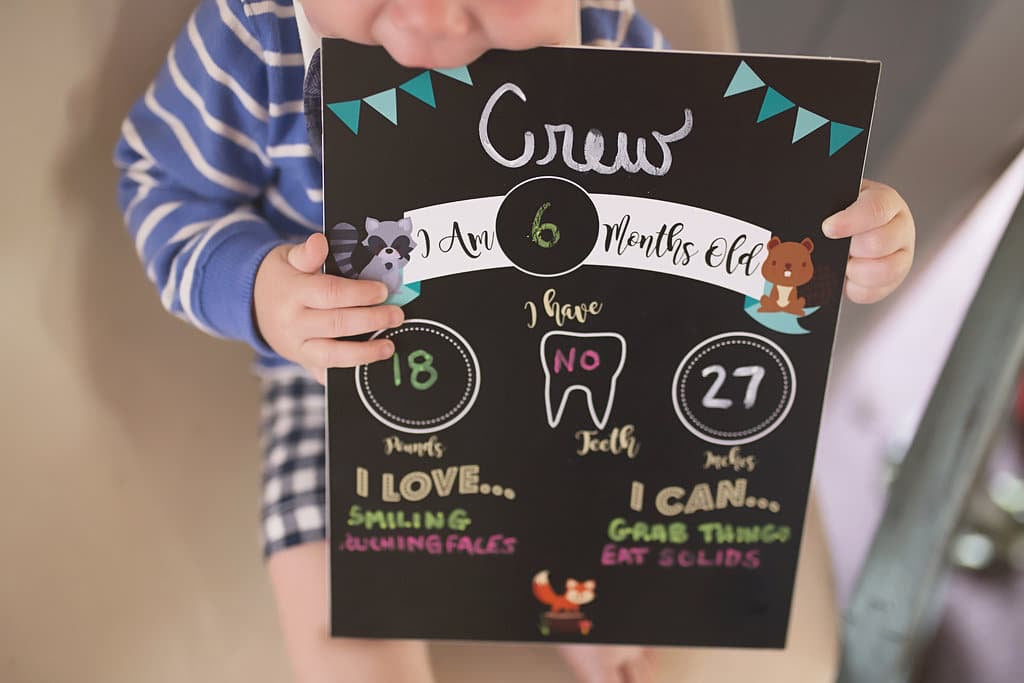 Crew
I Am 6 Months Old
I have
18 NO 27
Pounds Teeth Inches
I LOVE... I CAN...
SMILING GRAB THINGS
FACES EAT SOLIDS